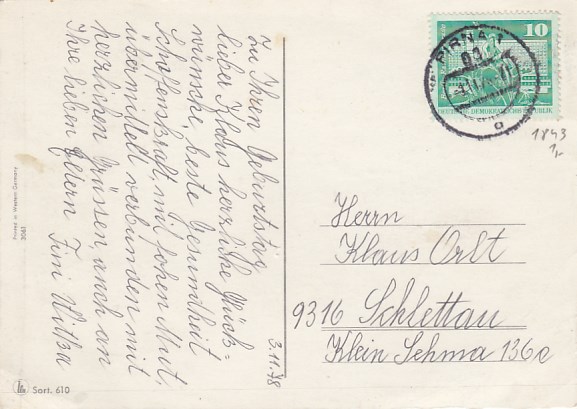 Zu Ihrem Geburtstag
lieber Klaus herzliche Glück=
wünsche, beste Gesundheit
Schaffenskraft, mit hohen Mut,
übermittelt verbunden mit
herzlichen Grüssen, auch an
Ihre lieben Eltern Fini
3.11.78
10
PIRNA 1
DEUTSCHE DEMOKRATISCHE REPUBLIK
1843
1,-
Herrn
Klaus Ort
9316 Schlettau
Klein Sehma 136c
Printed in Western Germany
Sort. 610